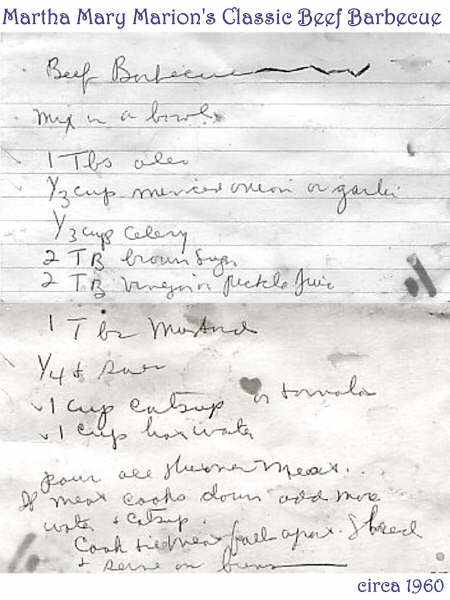 Martha Mary Marion's Classic Beef Barbecue
Beef Barbecue
Mix in a bowl
1 Tbs oleo
1/3 cup minced onion or garlic
1/3 cup Celery
2 TB brown Sugar
2 TB vinegar or pickle Juice
1 Tbs Mustard
1/4 t
1 cup catsup or tomato
1 cup hot water
pour all over Meat.
If meat cooks down add more
water + Catsup.
Cook til Meat falls apart. Shred
+ serve on buns
circa 1960